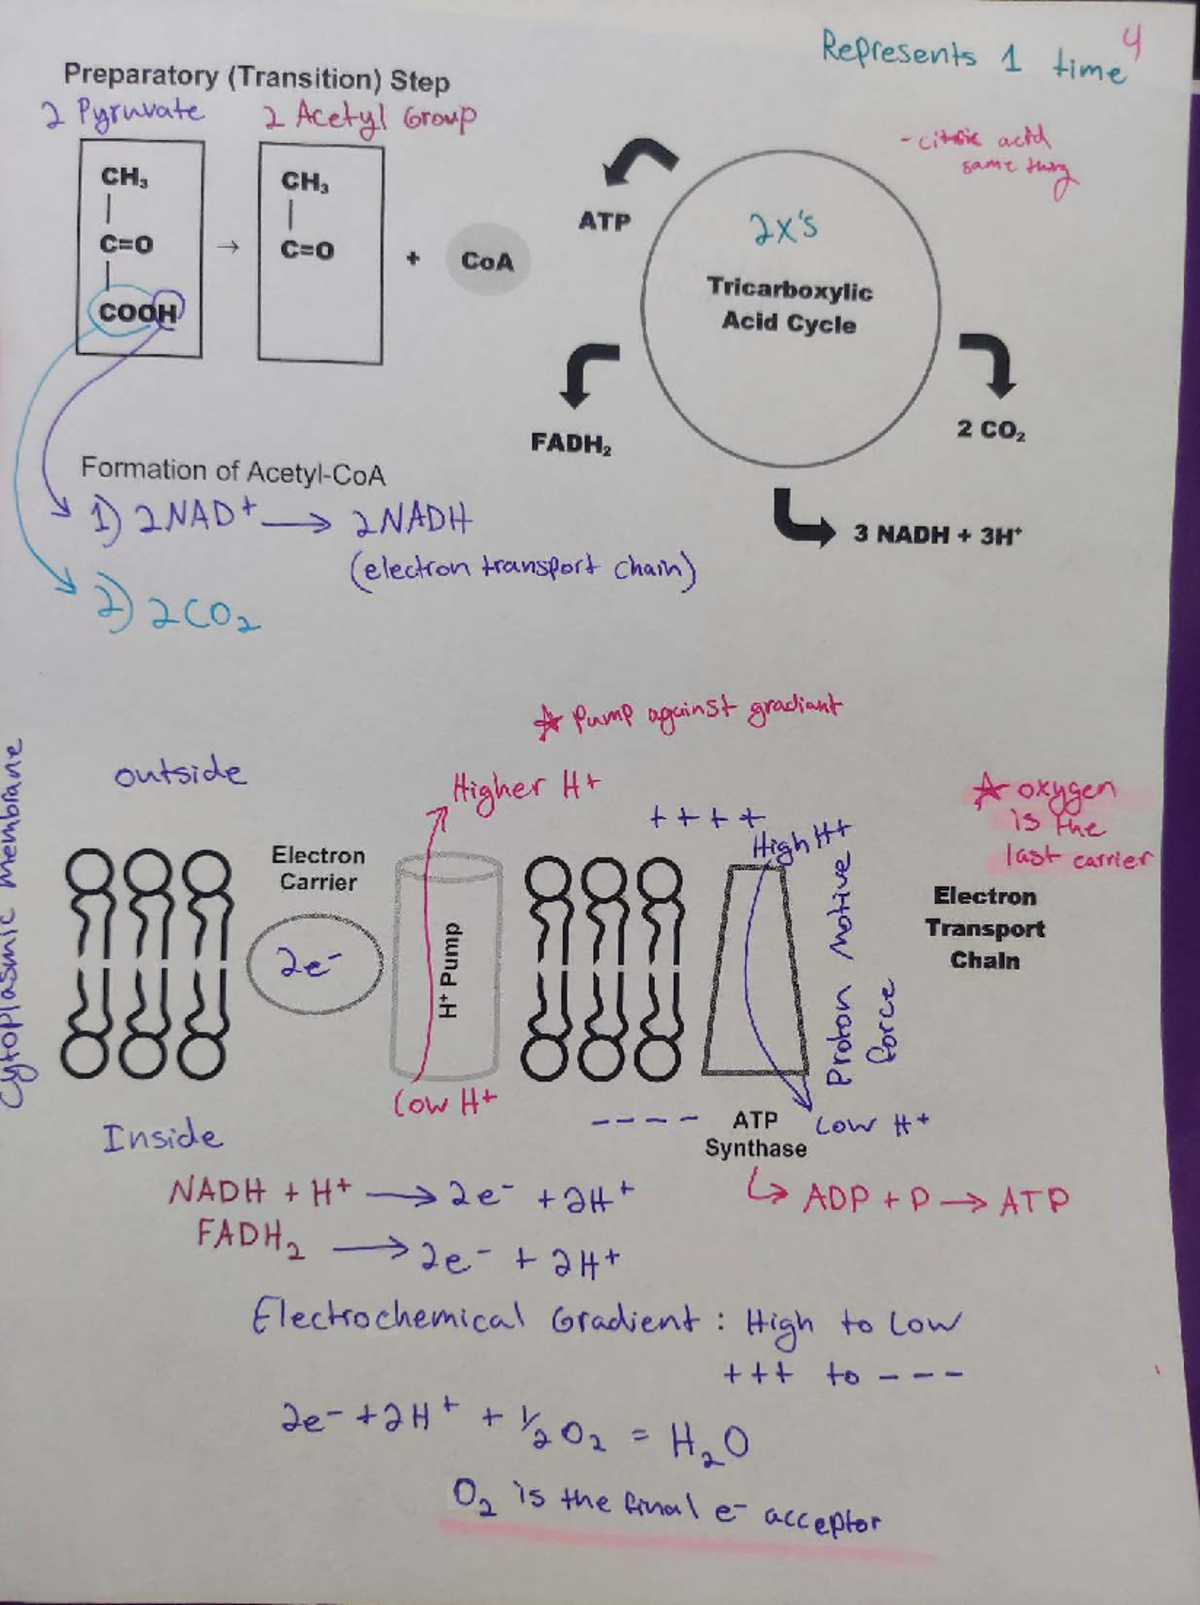 4
Represents 1 time
Preparatory (Transition) Step
2 Pyruvate
2 Acetyl Group
- citric acid
same thing
CH₃
|
C=O
|
COOH
→
CH₃
|
C=O
+
CoA
ATP
2x's
Tricarboxylic
Acid Cycle
FADH₂
2 CO₂
3 NADH + 3H⁺
Formation of Acetyl-CoA
1) 2NAD+ → 2NADH
(electron transport chain)
2) 2CO₂
☆ Pump against gradiant
Cytoplasmic membrane
outside
Higher H+
++++
High H+
☆ oxygen
is the
last carrier
Electron
Carrier
2e⁻
H⁺ Pump
Proton Motive
force
Electron
Transport
Chain
Low H+
Inside
----
ATP
Synthase
Low H+
NADH + H+ → 2e⁻ + 2H+
↳ ADP + P → ATP
FADH₂ → 2e⁻ + 2H+
Electrochemical Gradient : High to Low
+++ to ---
2e⁻ + 2H+ + ½O₂ = H₂O
O₂ is the final e⁻ acceptor